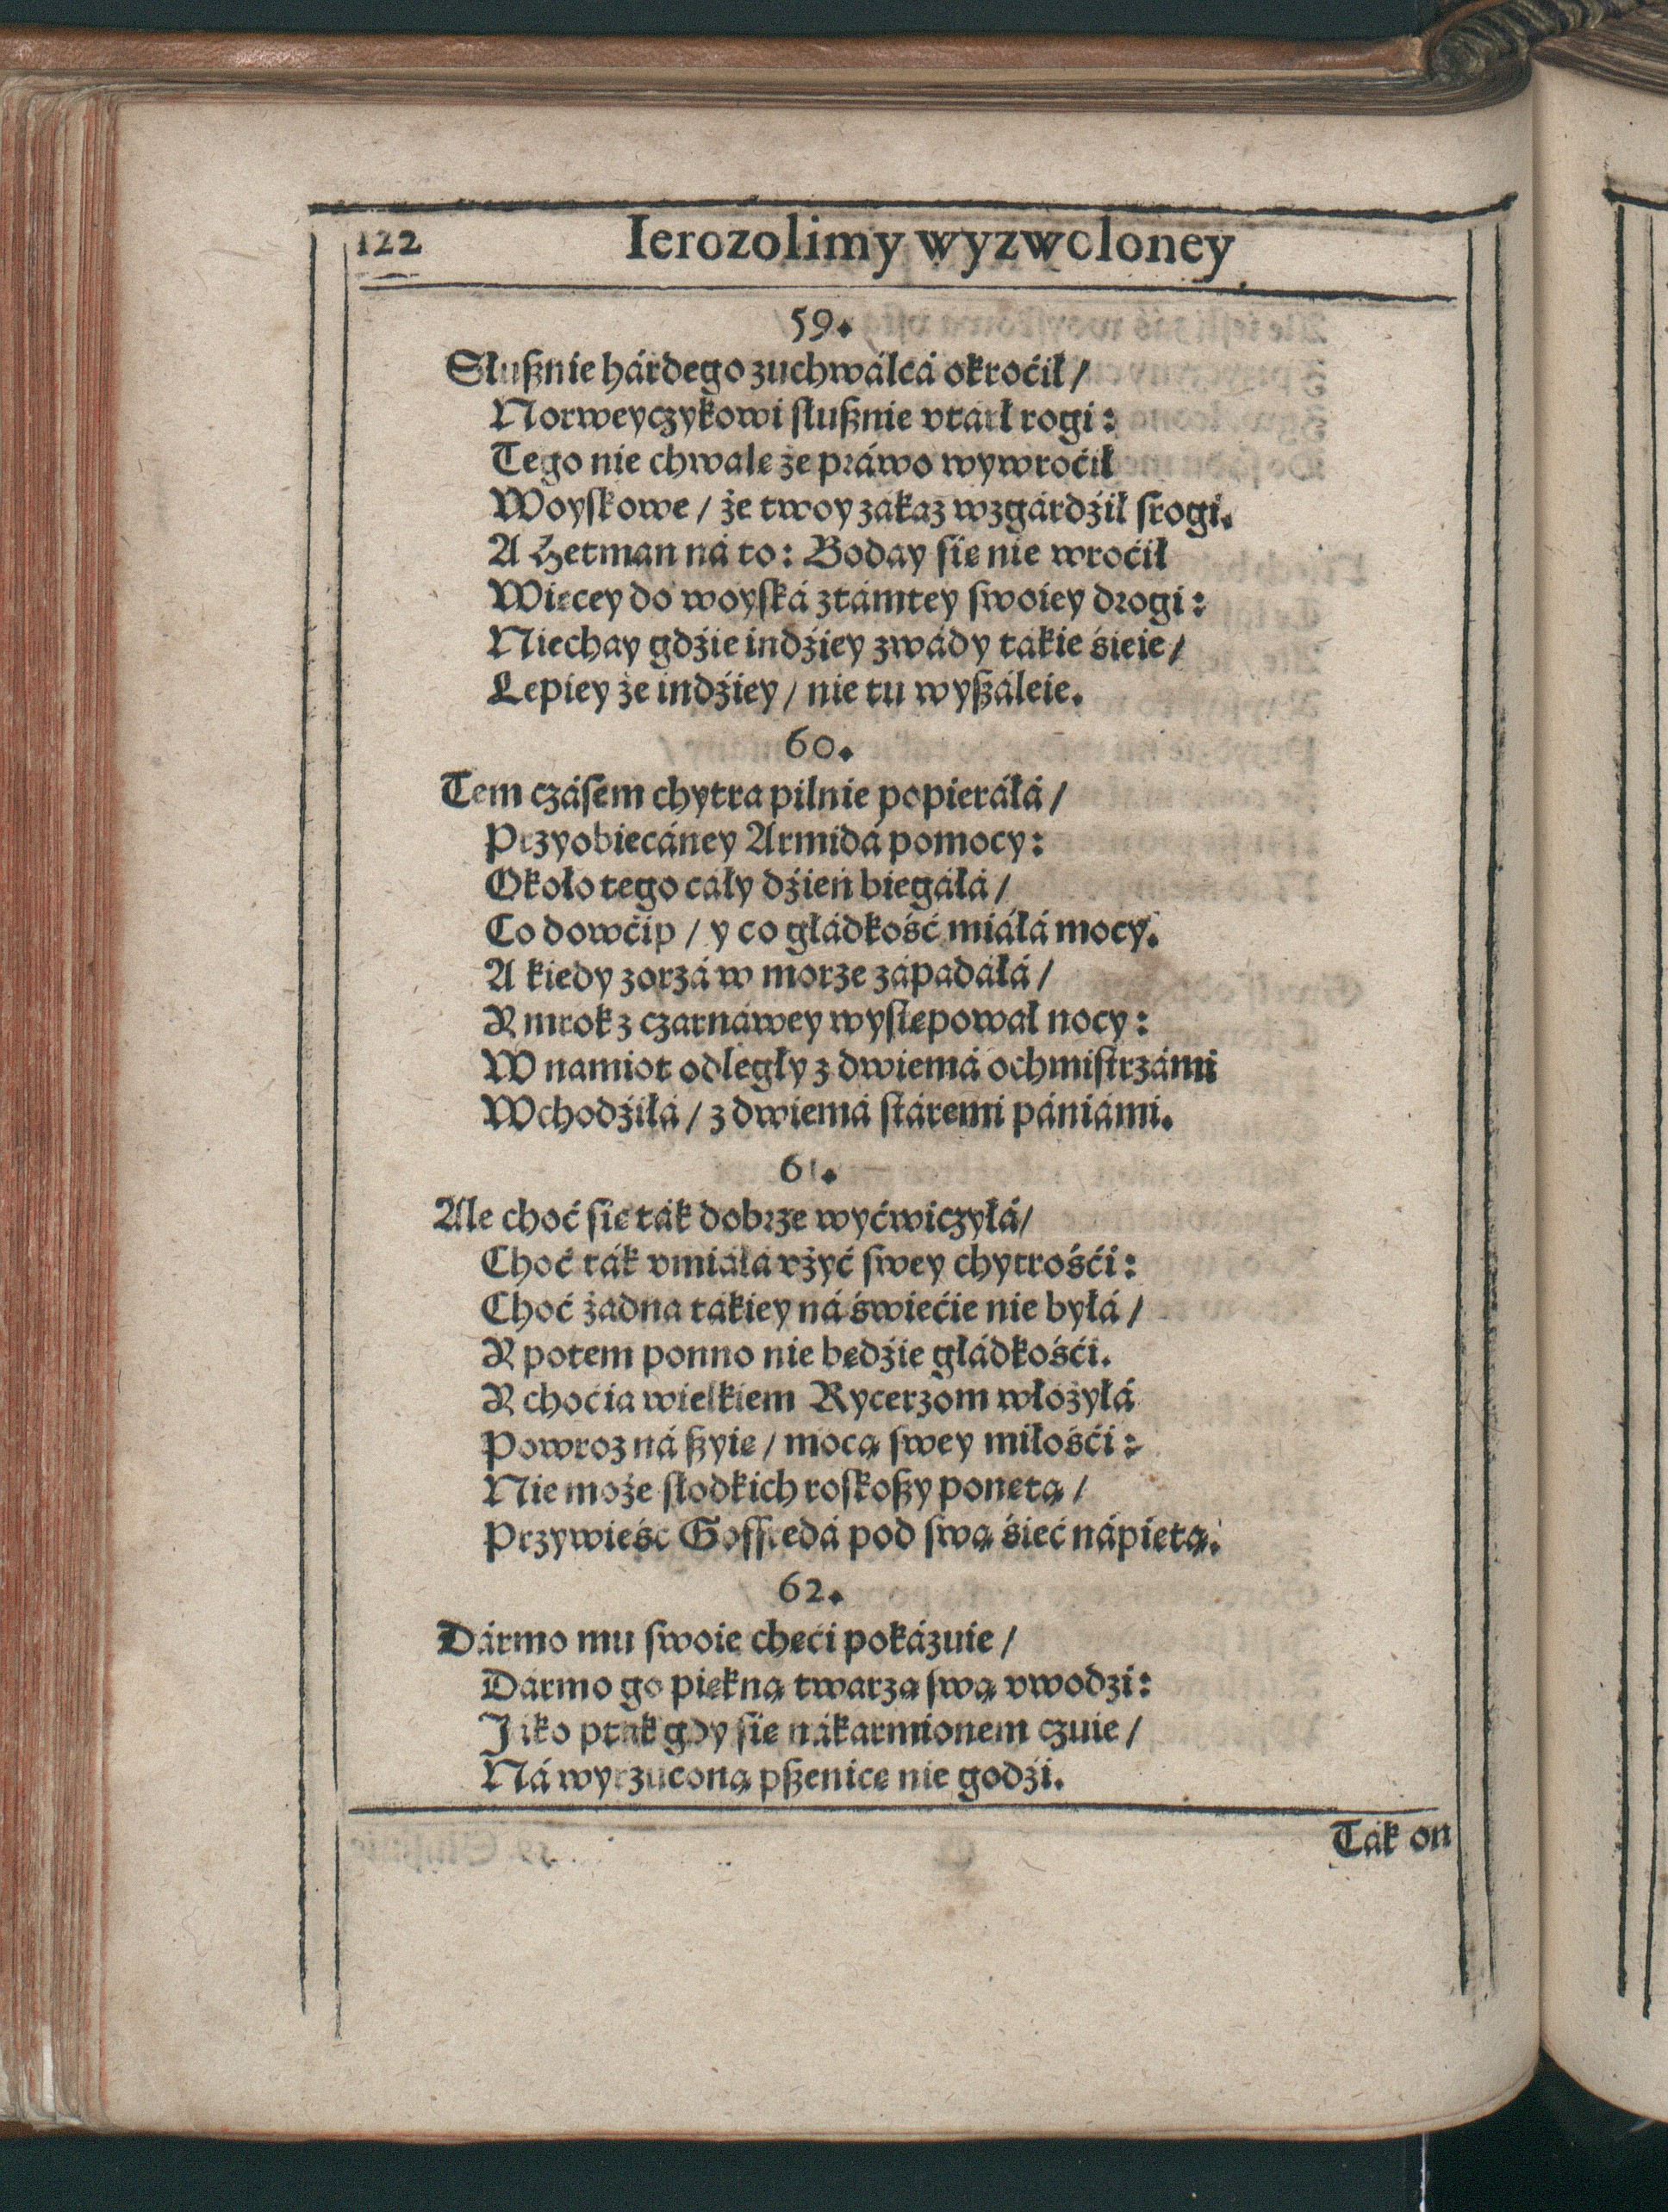 122 Ierozolimy wyzwoloney
59.
Słußnie hárdego zuchwálcá okroćił /
Norweyczykowi słußnie vtárł rogi:
Tego nie chwalę że práwo wywroćił
Woyskowe / że twoy zakaz wzgárdźił srogi.
A Hetman ná to: Boday się nie wroćił
Więcey do woyská ztámtey swoiey drogi:
Niechay gdźie indźiey zwády tákie śieie /
Lepiey że indźiey / nie tu wyßáleie.
60.
Tem czásem chytra pilnie popieráłá /
Przyobiecáney Armidá pomocy:
Około tego cáły dźień biegáłá /
Co dowćip / y co głádkość miáłá mocy.
A kiedy zorzá w morze západáłá /
Y mrok z czarnáwey występował nocy:
W namiot odległy z dwiemá ochmistrzámi
Wchodźiłá / z dwiemá stáremi pániámi.
61.
Ale choć się ták dobrze wyćwiczyłá /
Choć ták vmiáłá vżyć swey chytrośći:
Choć żadna tákiey ná świećie nie byłá /
Y potem ponno nie będźie głádkośći.
Y choćia wielkiem Rycerzom włożyłá
Powroz ná ßyię / mocą swey miłośći:
Nie może słodkich roskoßy ponętą /
Przywieść Goffredá pod swą śieć nápiętą.
62.
Dármo mu swoie chęći pokázuie /
Dármo go piękną twarzą swą vwodzi:
Jáko ptak gdy się nákarmionem czuie /
Ná wyrzuconą pßenicę nie godźi.
Ták on